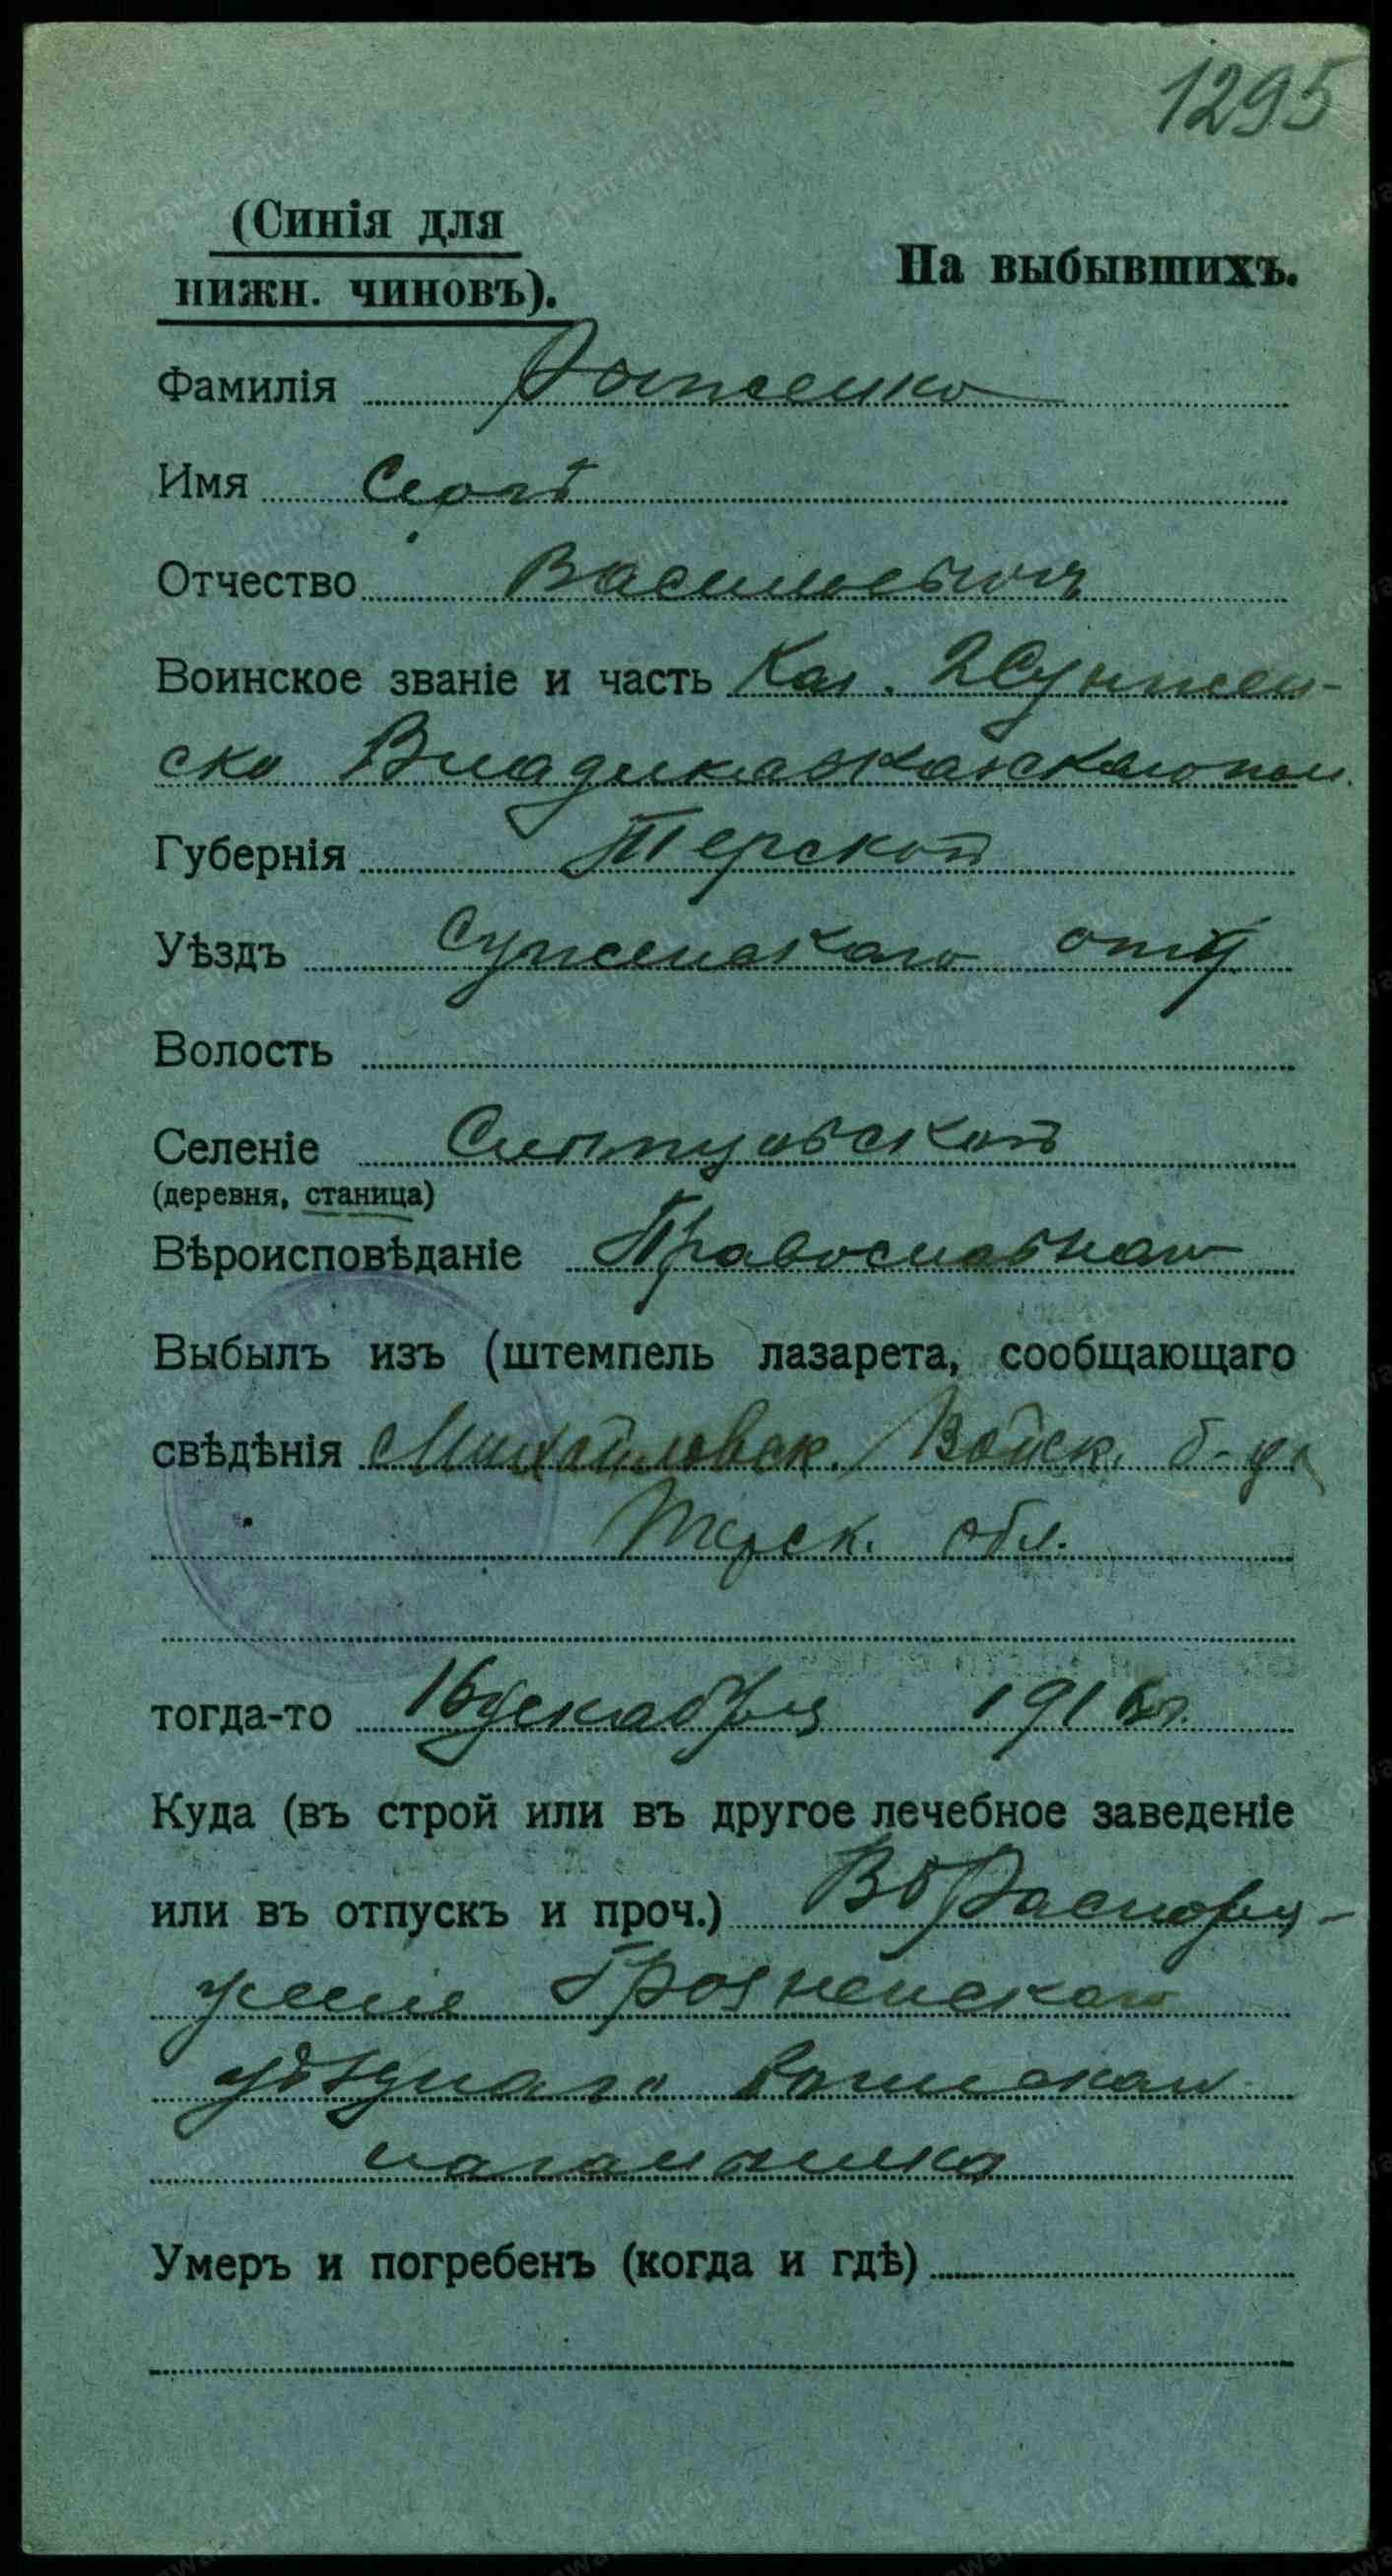 1295
(Синія для
нижн. чиновъ).
На выбывшихъ.
Фамилія
Имя
Отчество Васильевичъ
Воинское званіе и часть Каз. 2 Сунжен-
ско Владикавказскаго пол.
Губернія Терской
Уѣздъ Сунженскаго отд
Волость
Селеніе Слѣпцовской
(деревня, станица)
Вѣроисповѣданіе Православнаго
Выбылъ изъ (штемпель лазарета, сообщающаго
свѣдѣнія Михайловск. Войск. б-ца
Терск. обл.
тогда-то 16 декабря 1916 г.
Куда (въ строй или въ другое лечебное заведеніе
или въ отпускъ и проч.) Въ распоря-
женіе Грозненскаго
уѣзднаго воинскаго
начальника
Умеръ и погребенъ (когда и гдѣ)